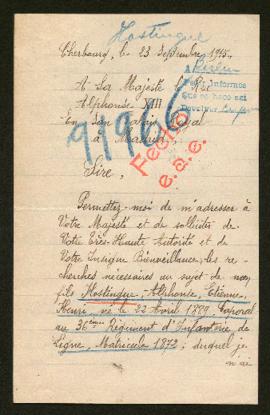 Hostingue
Cherbourg, le 23 Septembre 1915.
A Sa Majesté le Roi
Alphonse XIII
En Son Palais Royal
à Madrid
91966
Fecho
e.a.e.
Sire,
Permettez-moi de m'adresser à
Votre Majesté et de solliciter de
Votre Très-Haute Autorité et de
Votre Insigne Bienveillance, les re-
cherches nécessaires au sujet de mon
fils Hostingue, Alphonse, Etienne,
Henri né le 22 Avril 1889, Caporal
au 36ème Régiment d'Infanterie de
Ligne, Matricule 1872; duquel je
n'ai